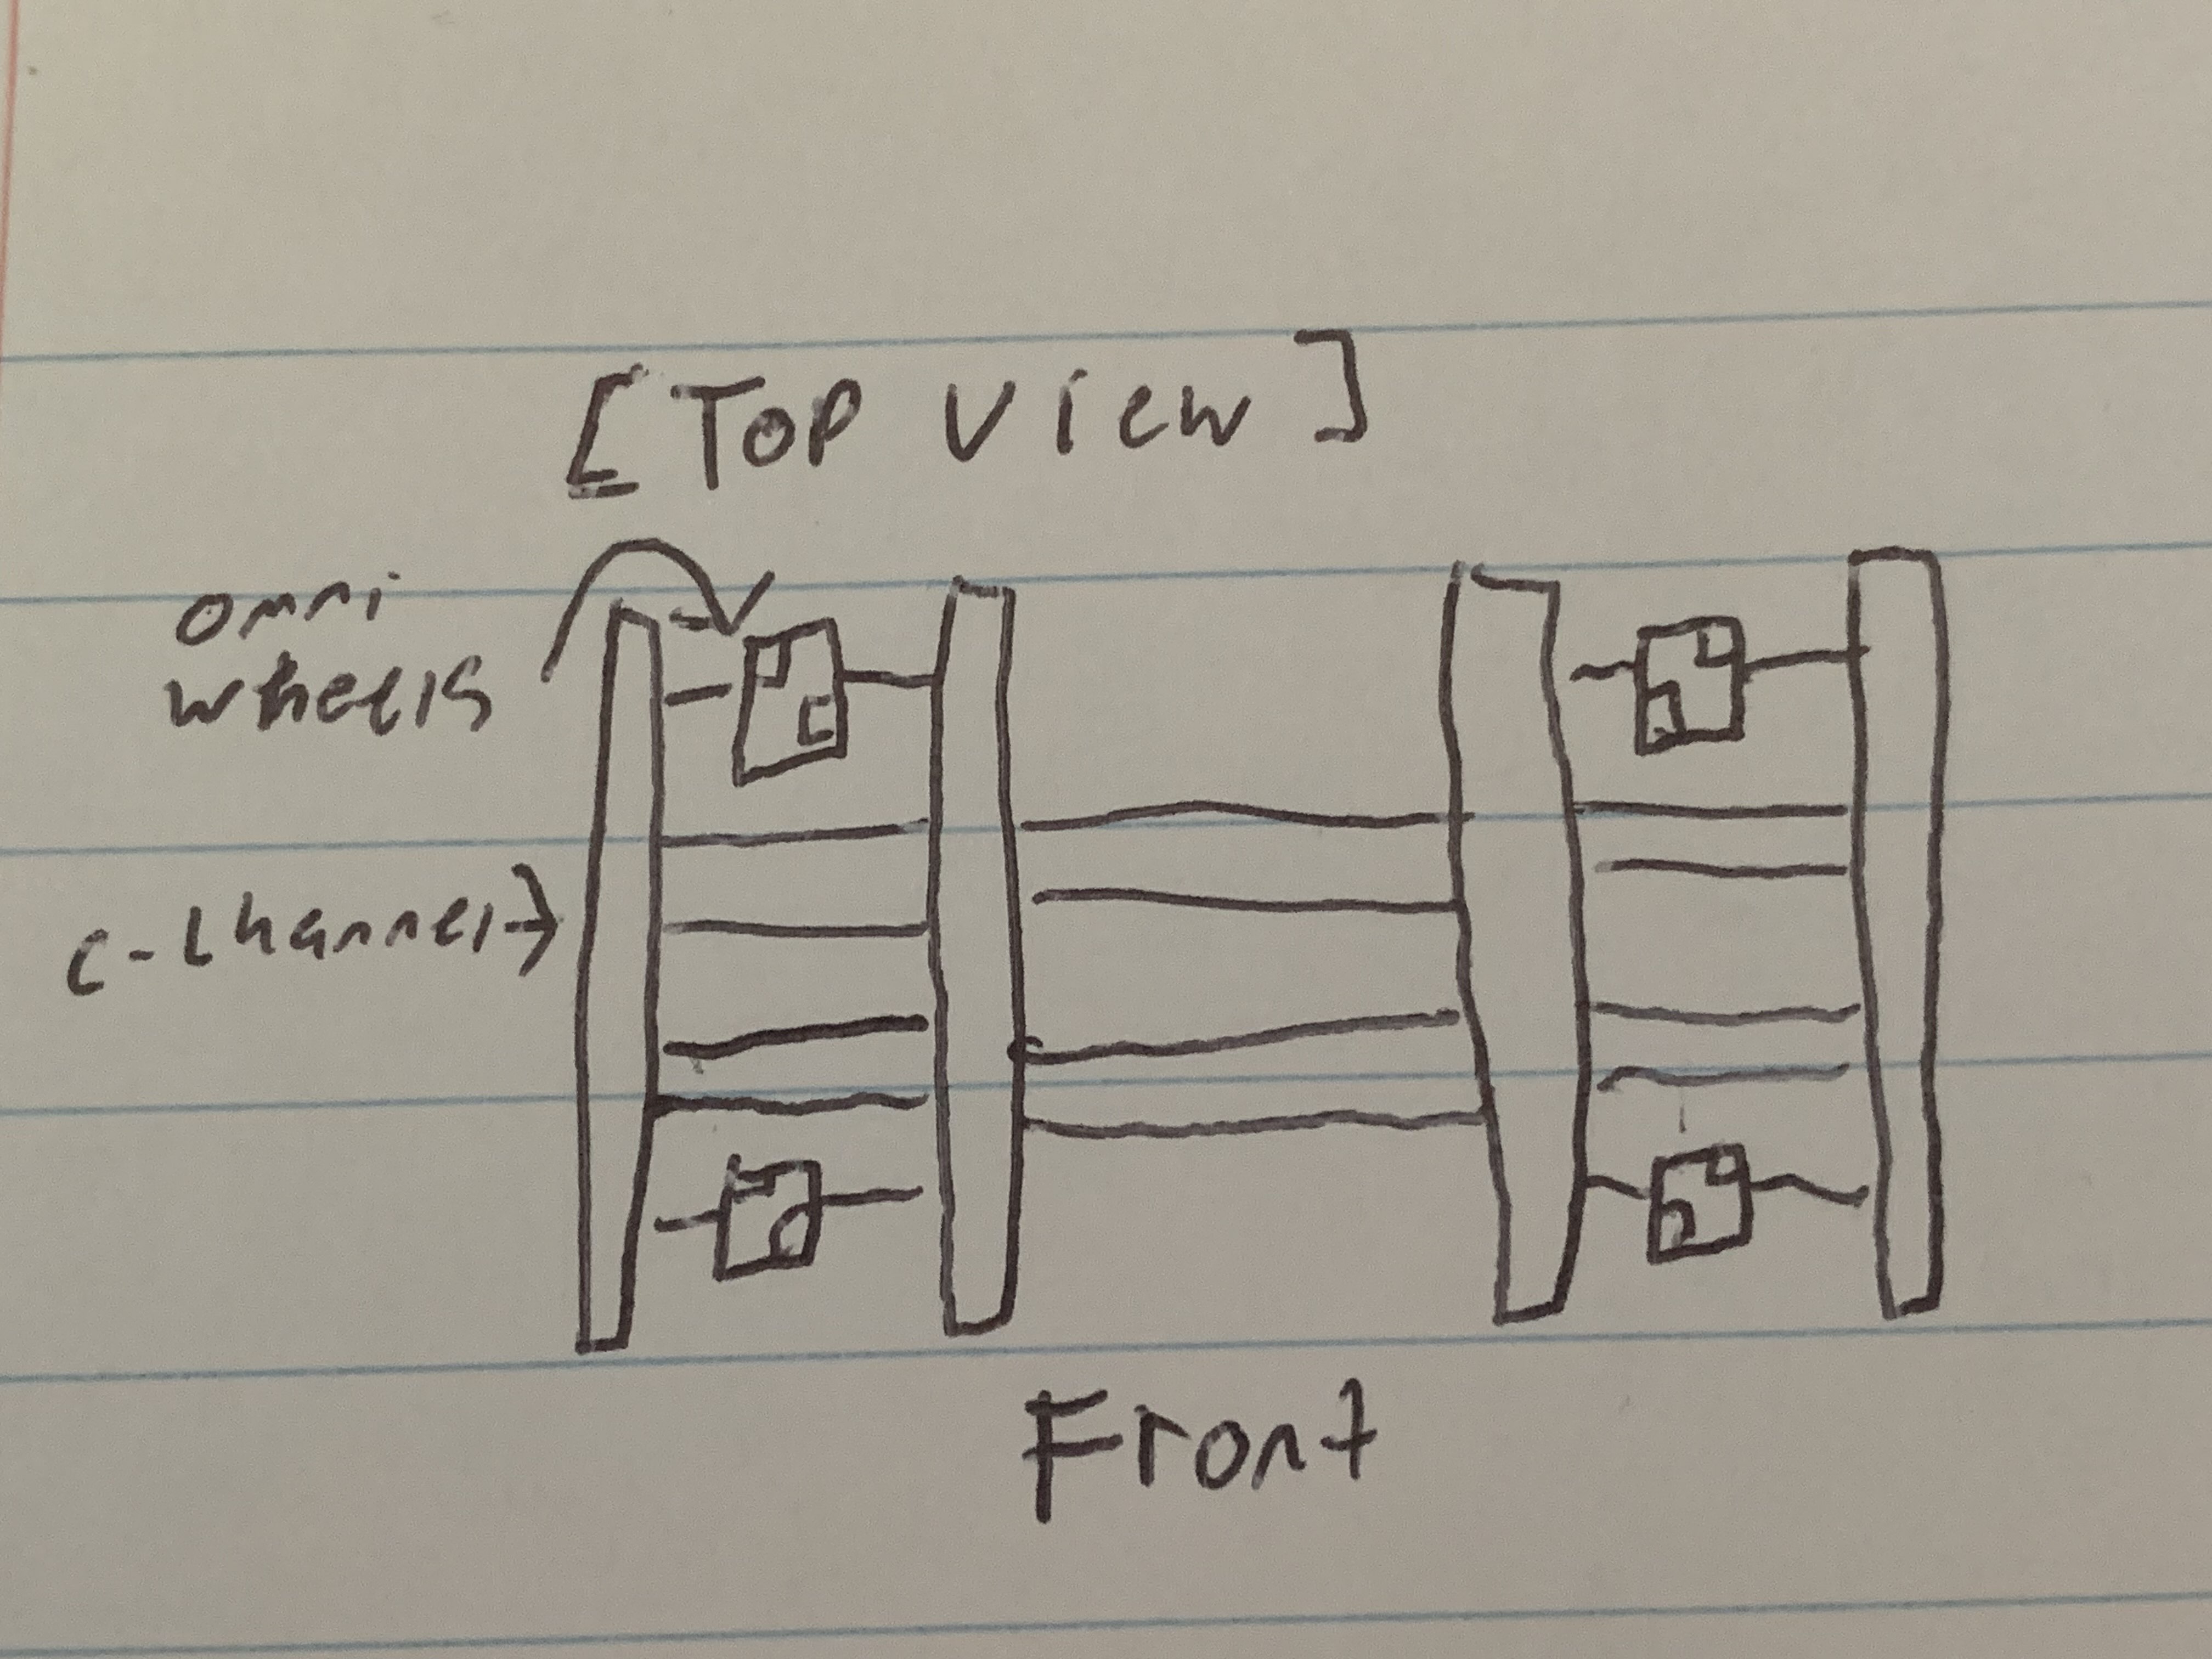 [TOP View]
omni
wheels
c-channel
Front